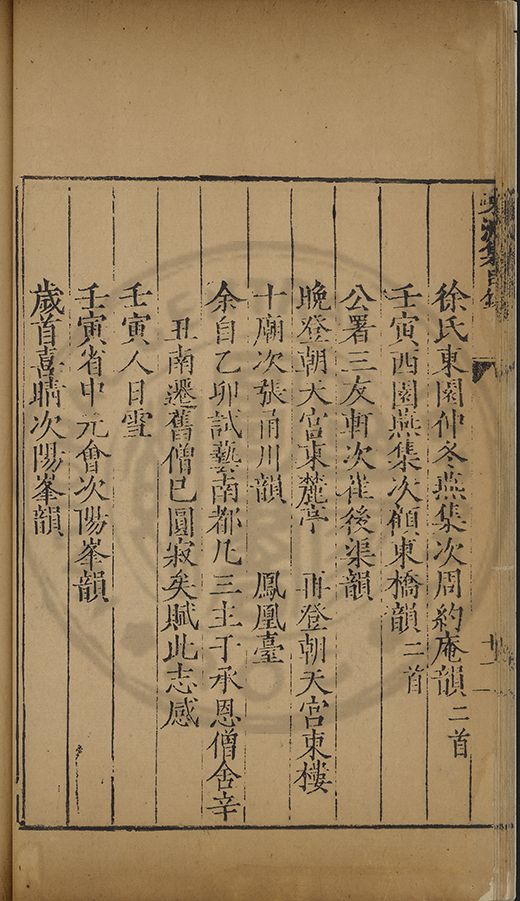 徐氏東園仲冬燕集次周約庵韻二首
壬寅西園燕集次顧東橋韻二首
公署三友軒次崔後渠韻
晚登朝天宮東麓亭 再登朝天宮東樓
十廟次張甬川韻 鳳凰臺
余自乙卯試藝南都凡三主于承恩僧舍辛
丑南遷舊僧已圓寂矣賦此志感
壬寅人日雪
壬寅省中元會次陽峯韻
歲首喜晴次陽峯韻